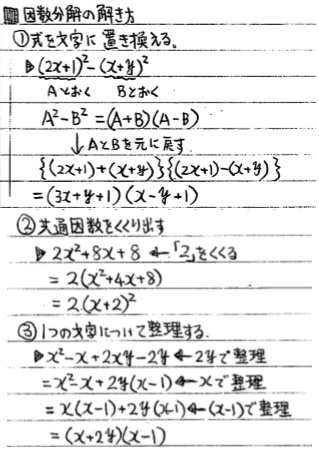 ■因数分解の解き方
①式を文字に置き換える。
▷(2x+1)²-(x+y)²
Aとおく Bとおく
A²-B²=(A+B)(A-B)
↓AとBを元に戻す
{(2x+1)+(x+y)}{(2x+1)-(x+y)}
=(3x+y+1)(x-y+1)
②共通因数をくくり出す
▷2x²+8x+8←「2」をくくる
=2(x²+4x+8)
=2(x+2)²
③1つの文字について整理する.
▷x²-x+2xy-2y←2yで整理
=x²-x+2y(x-1)←xで整理
=x(x-1)+2y(x-1)←(x-1)で整理
=(x+2y)(x-1)